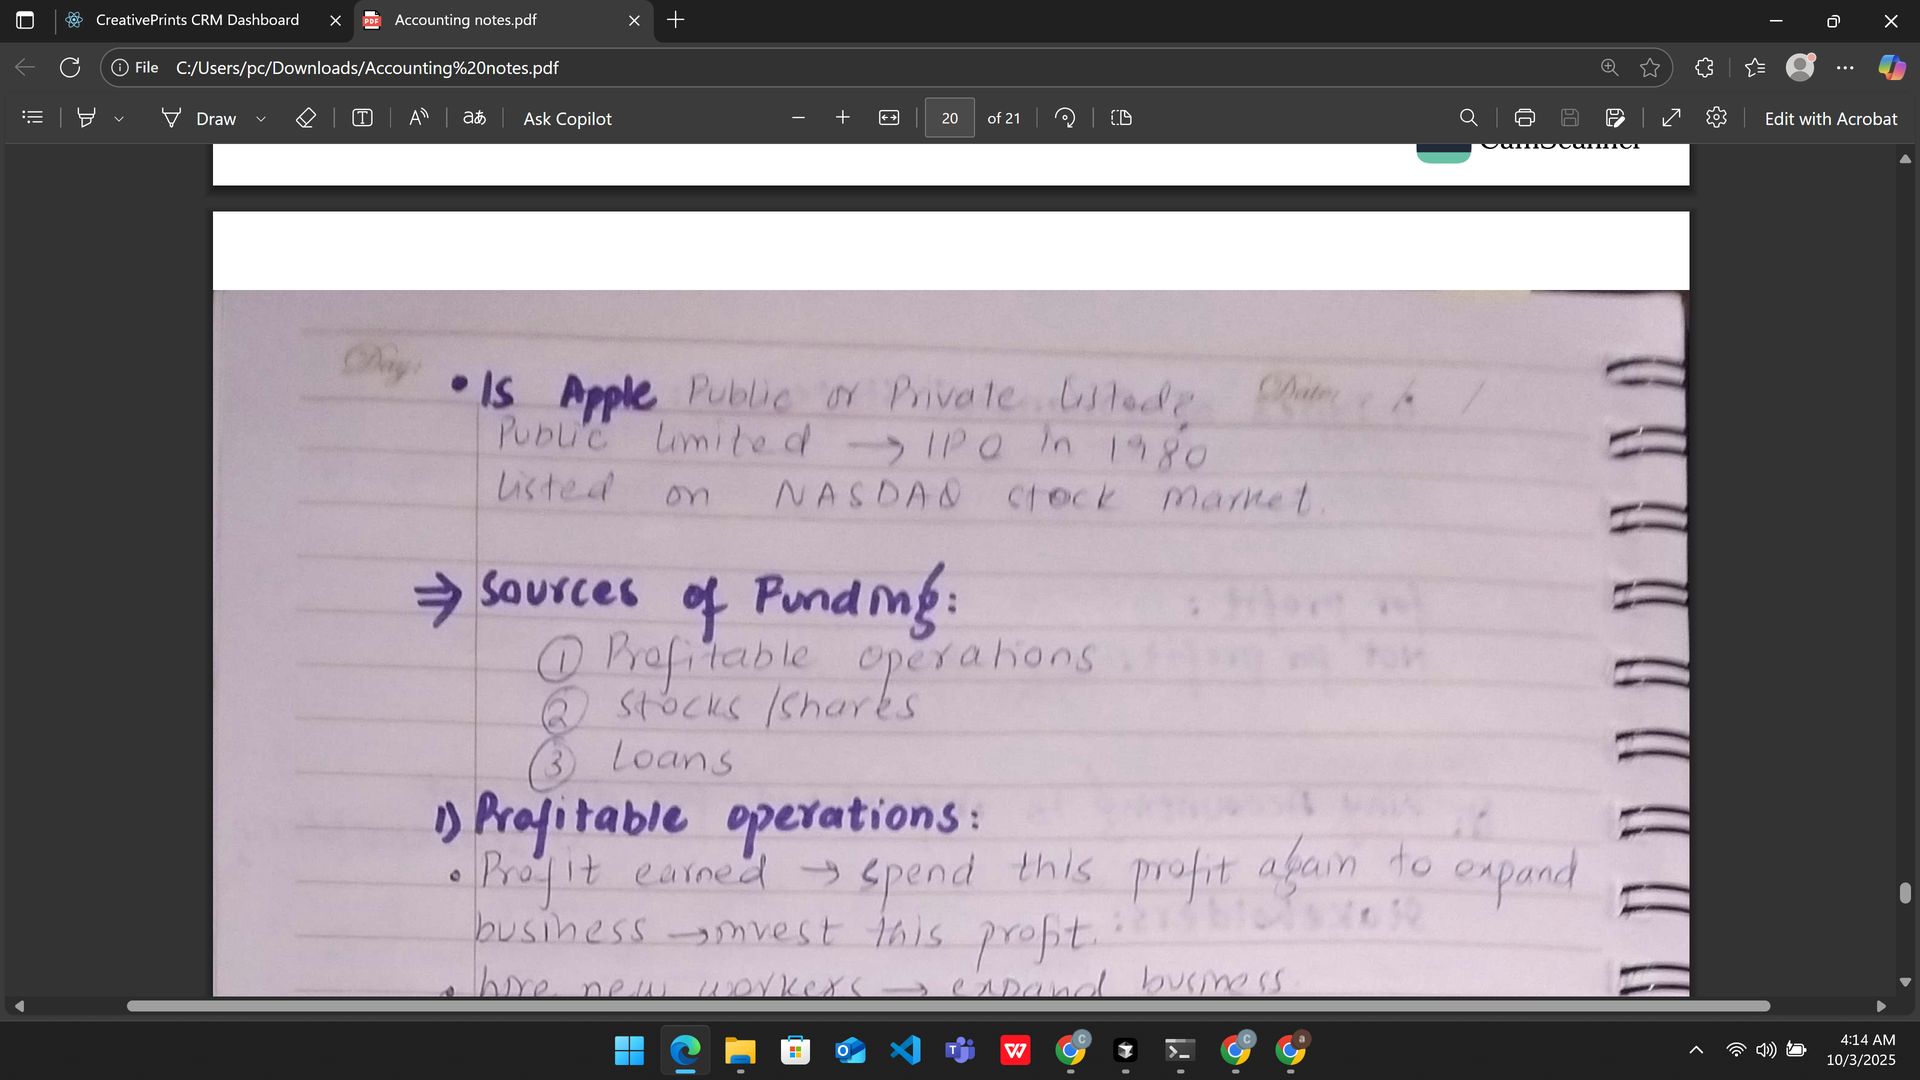 CreativePrints CRM Dashboard
Accounting notes.pdf
File C:/Users/pc/Downloads/Accounting%20notes.pdf
Draw
aあ
Ask Copilot
20 of 21
Edit with Acrobat
CamScanner
Day:
Date: / /
• Is Apple Public or Private listed?
Public limited → IPO in 1980
listed on NASDAQ stock market.
⇒ Sources of Funding:
① Profitable operations
② stocks /shares
③ Loans
1) Profitable operations:
• Profit earned → spend this profit again to expand
business → invest this profit.
• hire new workers → expand business
4:14 AM
10/3/2025